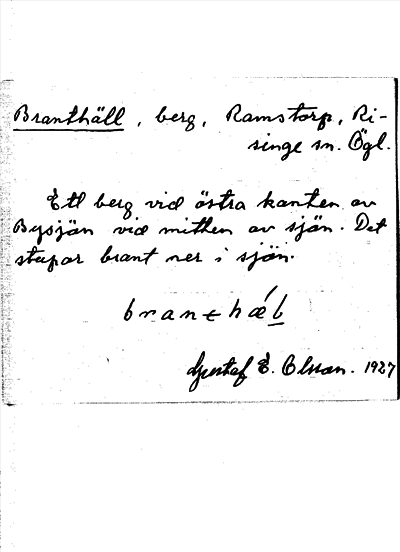 Branthäll, berg, Ramstorp, Ri-
singe sn. Ögl.
Ett berg vid östra kanten av
Bysjön vid mitten av sjön. Det
stupar brant ner i sjön.
brant hǽḷ
Gustaf E. Olsson. 1927